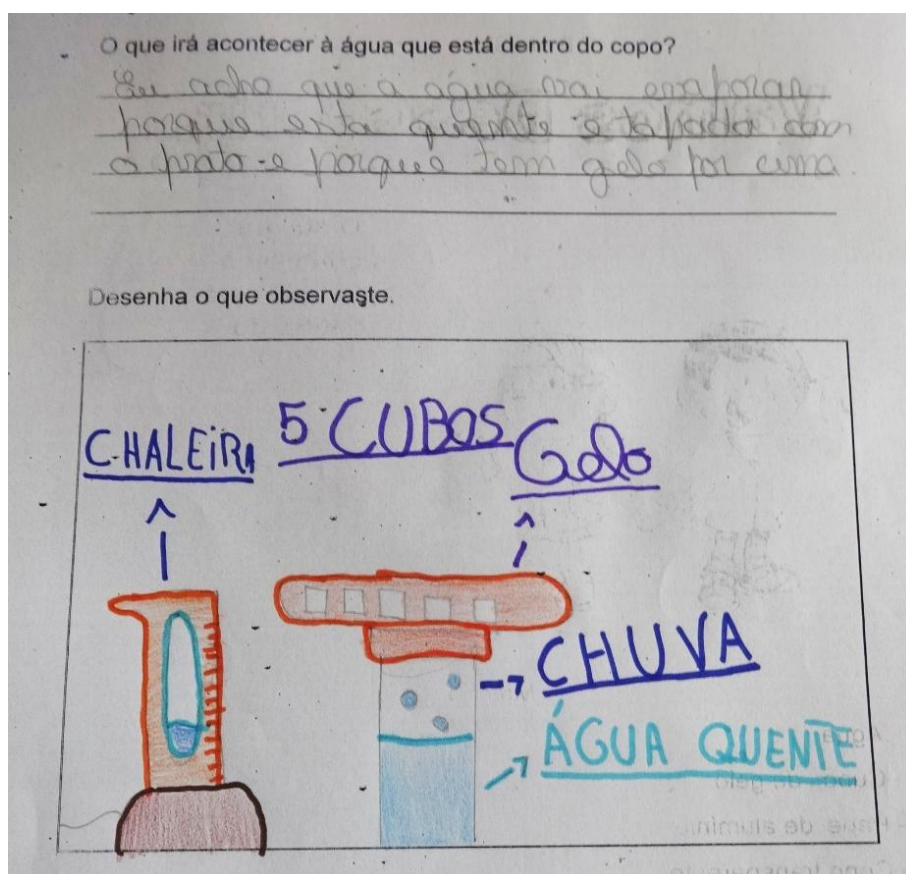 O que irá acontecer à água que está dentro do copo?
Eu acho que a água vai evaporar
porque está quente e tapada com
o prato e porque tem gelo por cima.
Desenha o que observaste.
CHALEIRA
5 CUBOS
Gelo
CHUVA
ÁGUA QUENTE